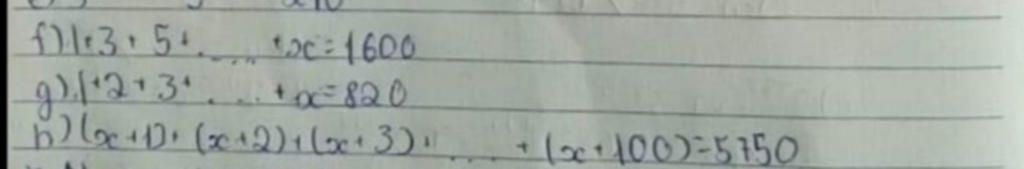 f) 1+3+5+.... +x=1600
g) 1+2+3+.... +x=820
h) (x+1)+(x+2)+(x+3)+.... +(x+100)=5750